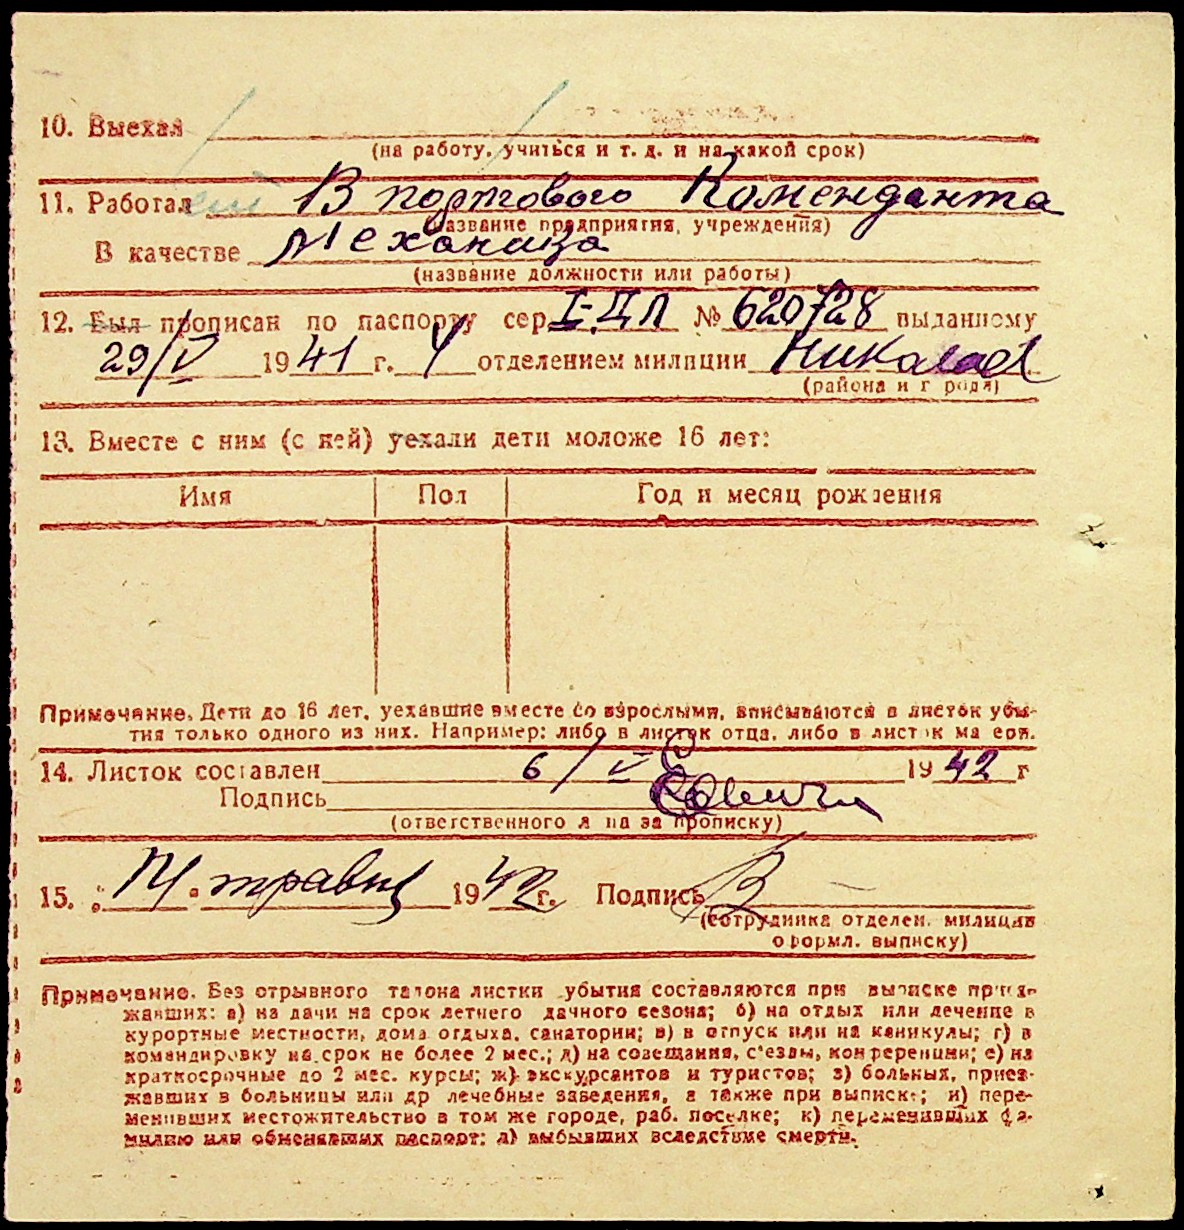 10. Выехал
(на работу, учиться и т. д. и на какой срок)
11. Работал В портового Коменданта
(название предприятия, учреждения)
В качестве Механика
(название должности или работы)
12. Был прописан по паспорту сер. I-ДЛ № 620728 выданному
29/V 1941 г. У отделением милиции Николаев
(района и города)
13. Вместе с ним (с ней) уехали дети моложе 16 лет:
Имя Пол Год и месяц рождения
Примечание. Дети до 16 лет, уехавшие вместе со взрослыми, вписываются в листок убы-
тия только одного из них. Например: либо в листок отца, либо в листок матери.
14. Листок составлен 6/V 1942 г
Подпись
(ответственного лица за прописку)
15. „14“ травня 1942 г. Подпись
(сотрудника отделен. милиции
оформл. выписку)
Примечание. Без отрывного талона листки убытия составляются при выписке приез-
жавших: а) на дачи на срок летнего дачного сезона; б) на отдых или лечение в
курортные местности, дома отдыха, санатории; в) в отпуск или на каникулы; г) в
командировку на срок не более 2 мес.; д) на совещания, с'езды, конференции; е) на
краткосрочные до 2 мес. курсы; ж) экскурсантов и туристов; з) больных, приез-
жавших в больницы или др лечебные заведения, а также при выписке; и) пере-
менивших местожительство в том же городе, раб. поселке; к) переменивших фа-
милию или обменявших паспорт; л) выбывших вследствие смерти.